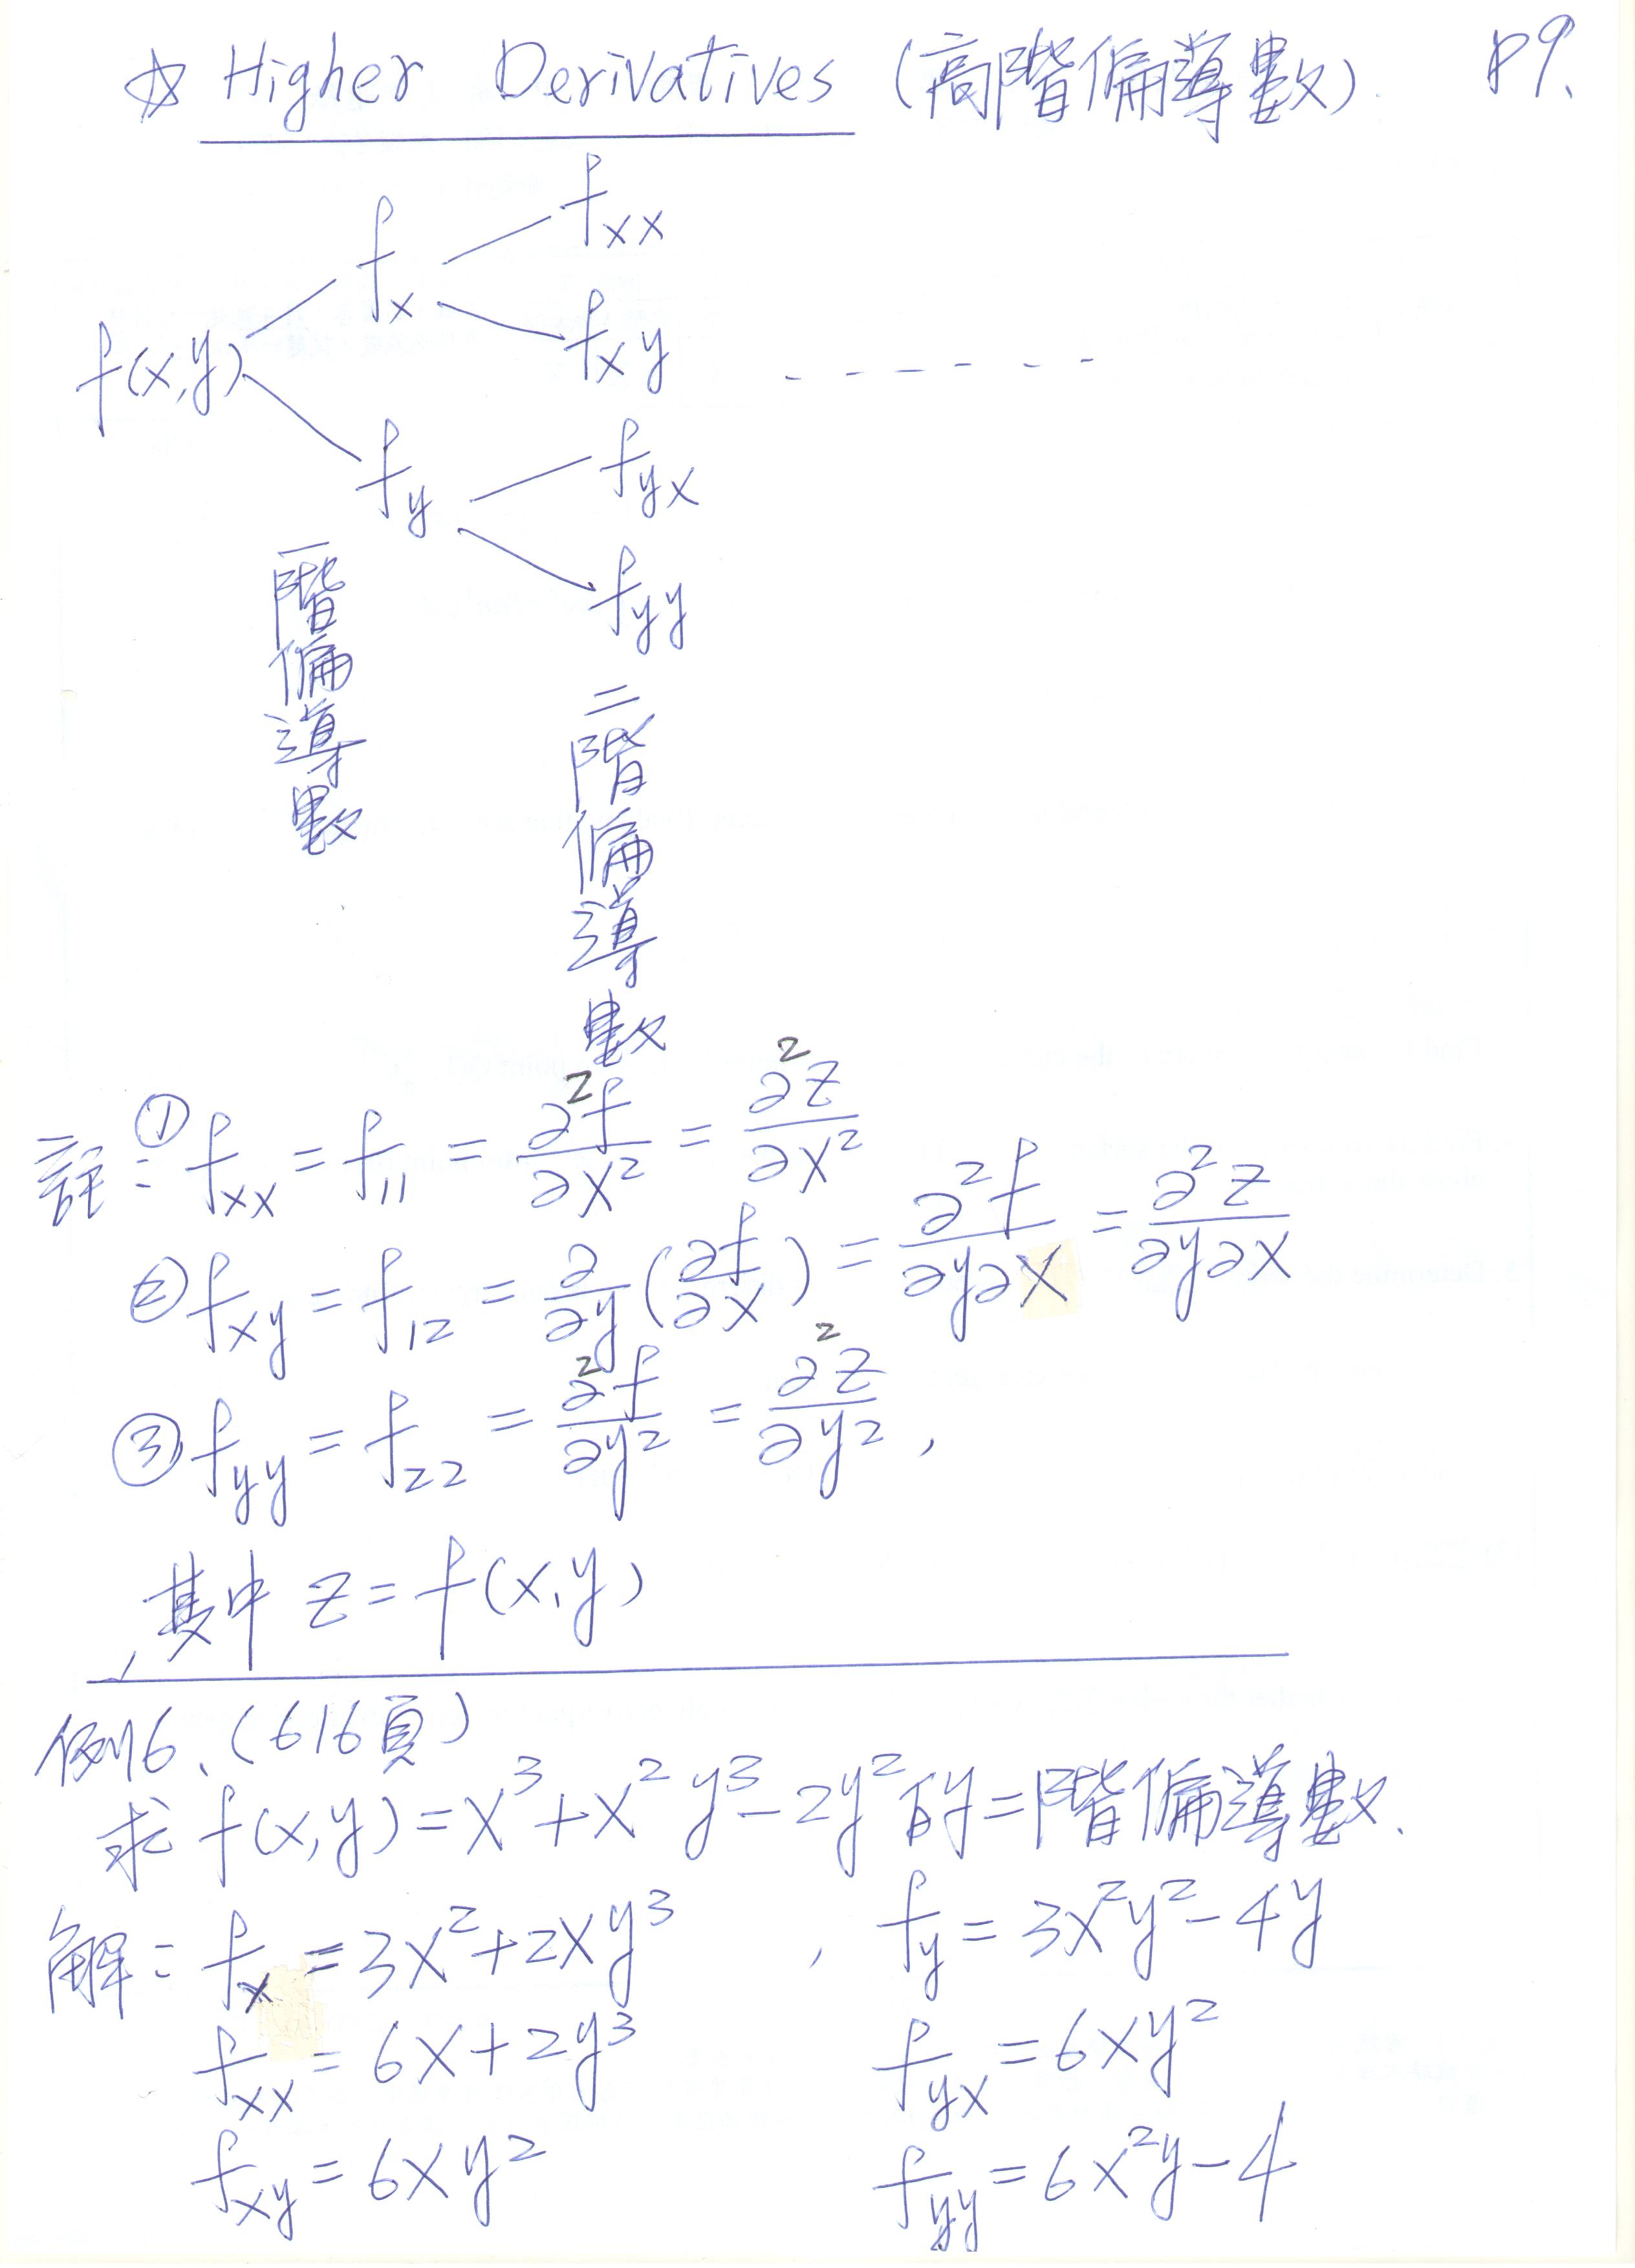 ☆ Higher Derivatives (高階偏導數) P9.
f_xx
f_x
f_xy - - - - - -
f(x,y)
f_yx
f_y
f_yy
一階偏導數
二階偏導數
註: ① f_xx = f_11 = ∂²f/∂x² = ∂²z/∂x²
② f_xy = f_12 = ∂/∂y (∂f/∂x) = ∂²f/∂y∂x = ∂²z/∂y∂x
③ f_yy = f_22 = ∂²f/∂y² = ∂²z/∂y² ,
其中 z = f(x,y)
例6、(616頁)
求 f(x,y) = x³+x²y³-2y² 的二階偏導數.
解: f_x = 3x²+2xy³ , f_y = 3x²y²-4y
f_xx = 6x+2y³ f_yx = 6xy²
f_xy = 6xy² f_yy = 6x²y-4